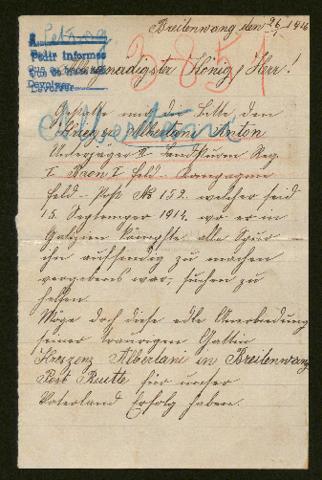 Breitenwang den 26 1916
Petición
Pedir informes
3857
Allergnädigster König & Herr!
Gestatte mir die Bitte den
Krieger Alberlani Anton
Unterjäger II Landsturm Reg.
I Baon I Feld-Kompagnie
Feld-Post No 152. welcher seid
15. September 1914. wo er in
Galizien kämpfte alle Spur
ihn aufsendig zu machen
vergebens war, suchen zu
helfen.
Möge doch diese edle Anerbedung
seiner traurigen Gattin
Kreszenz Alberlani in Breitenwang
Post Reutte für unser
Vaterland Erfolg haben.